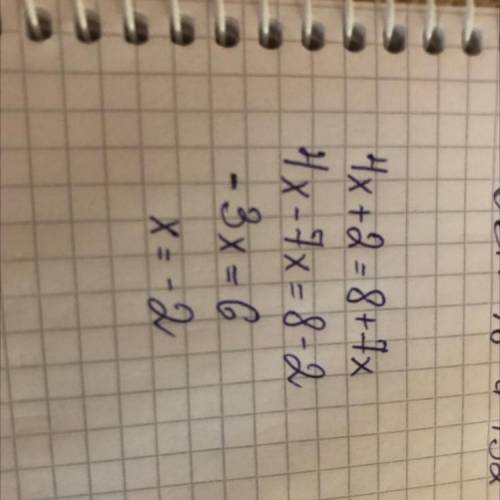 4x + 2 = 8 + 7x
4x - 7x = 8 - 2
- 3x = 6
x = - 2